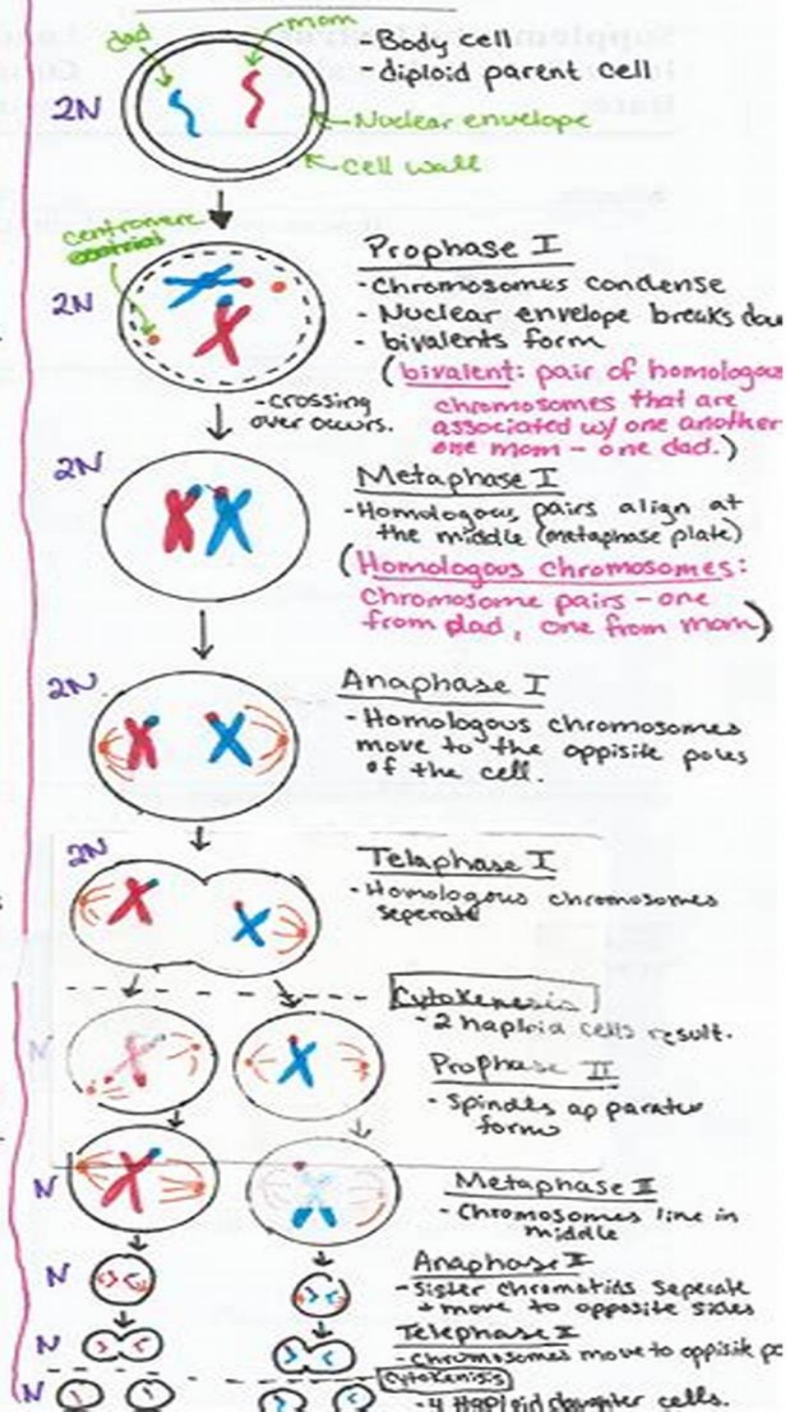 dad
mom
- Body cell
- diploid parent cell
2N
Nuclear envelope
Cell wall
centromere
2N
Prophase I
- Chromosomes condense
- Nuclear envelope breaks dow
- bivalents form
(bivalent: pair of homologous
chromosomes that are
associated w/ one another
one mom - one dad.)
- crossing
over occurs.
2N
Metaphase I
- Homologous pairs align at
the middle (metaphase plate)
(Homologous chromosomes:
Chromosome pairs - one
from dad, one from mom)
2N
Anaphase I
- Homologous chromosomes
move to the opposite poles
of the cell.
2N
Telaphase I
- Homologous chromosomes
seperate
Cytokenesis
- 2 haploid cells result.
N
Prophase II
- Spindles apparatus
forms
N
Metaphase II
- Chromosomes line in
middle
N
Anaphase II
- Sister chromatids seperate
+ move to opposite sides
N
Telephase II
- Chromosomes move to oppisite po
Cytokenisis
N
- 4 Haploid daughter cells.